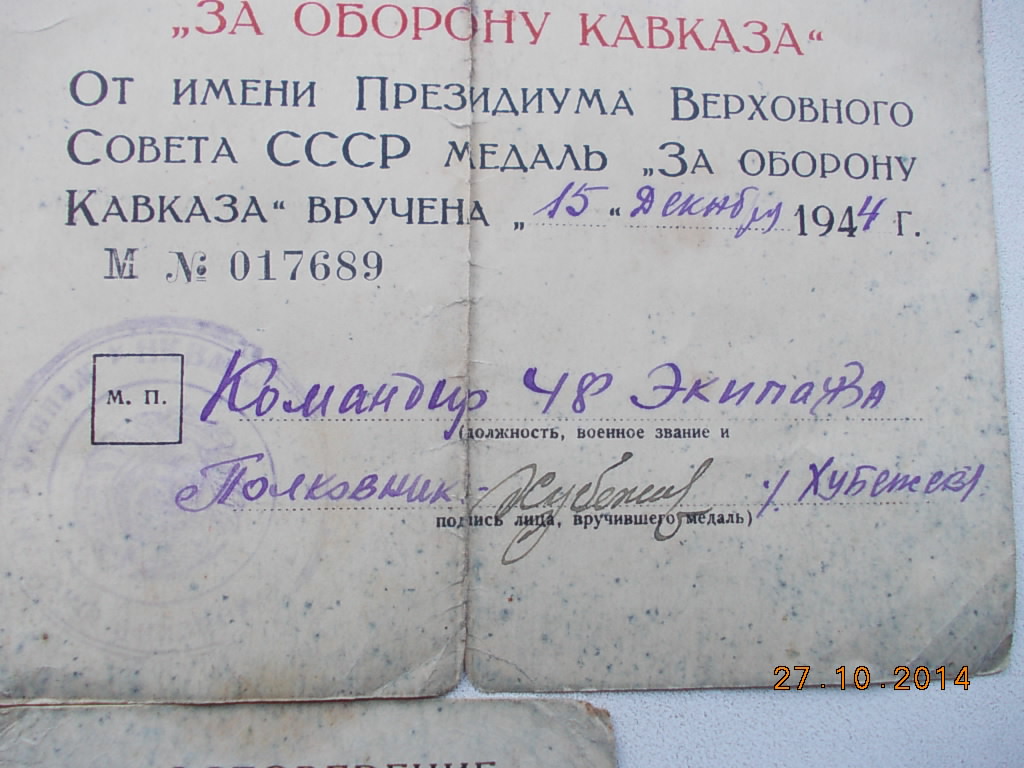 „ЗА ОБОРОНУ КАВКАЗА“
ОТ ИМЕНИ ПРЕЗИДИУМА ВЕРХОВНОГО
СОВЕТА СССР МЕДАЛЬ „ЗА ОБОРОНУ
КАВКАЗА“ ВРУЧЕНА „15“ Декабря 1944 г.
М № 017689
М. П.
Командир 48 Экипажа
(должность, военное звание и
Полковник -
подпись лица, вручившего медаль)
27.10.2014